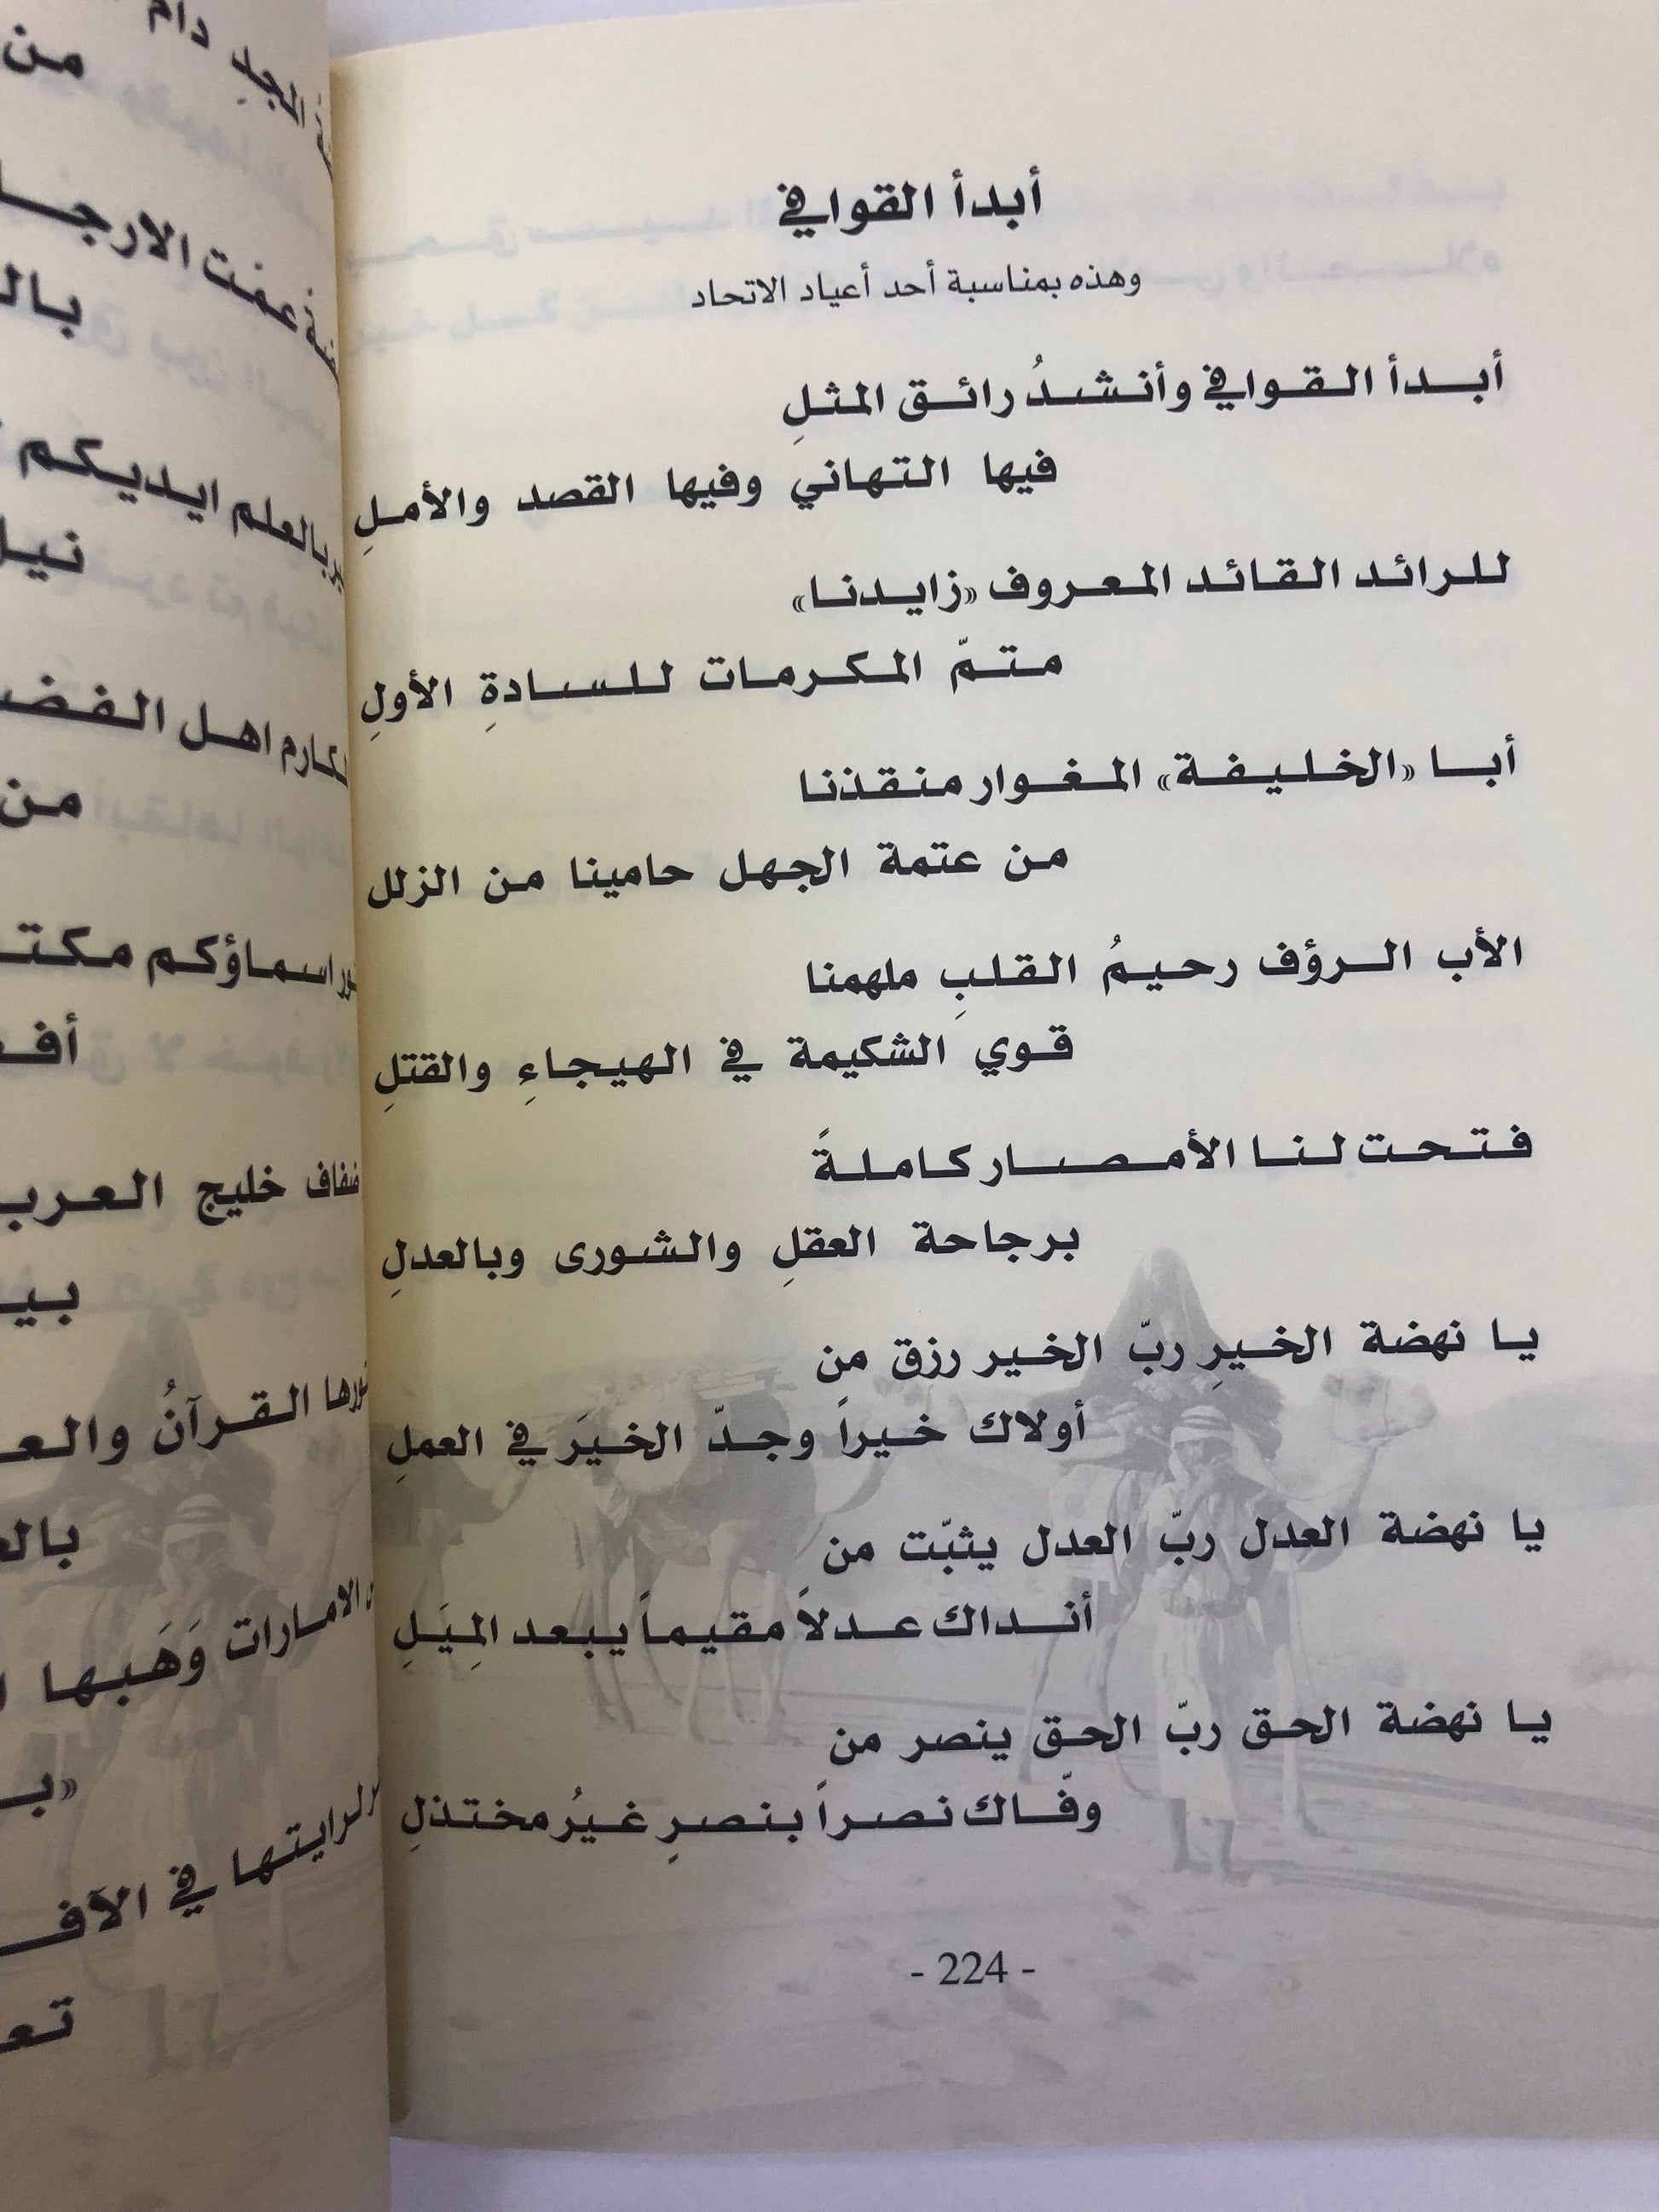 أبدأ القوافي
وهذه بمناسبة أحد أعياد الاتحاد
أبدأ القوافي وأنشدُ رائق المثلِ
فيها التهاني وفيها القصد والأملِ
للرائد القائد المعروف «زايدنا»
متمّ المكرمات للسادةِ الأولِ
أبا «الخليفة» المغوار منقذنا
من عتمة الجهل حامينا من الزلل
الأب الرؤف رحيمُ القلبِ ملهمنا
قوي الشكيمة في الهيجاءِ والقتلِ
فتحت لنا الأمصار كاملةً
برجاحة العقلِ والشورى وبالعدلِ
يا نهضة الخيرِ ربّ الخير رزق من
أولاك خيراً وجدّ الخيَر في العملِ
يا نهضة العدل ربّ العدل يثبّت من
أنداك عدلاً مقيماً يبعد المِيَلِ
يا نهضة الحق ربّ الحق ينصر من
وفّاك نصراً بنصرٍ غيرُ مختذلِ
- 224 -
دام
من
عمت الارجا
بال
بالعلم ايديكم
نيل
اهل الفضـ
من
اسماؤكم مكتـ
أفـ
ضفاف خليج العرب
بيـ
القرآنُ والعـ
بالـ
الامارات وَهَبها
«بـ
لرايتها في الآفـ
تعـ